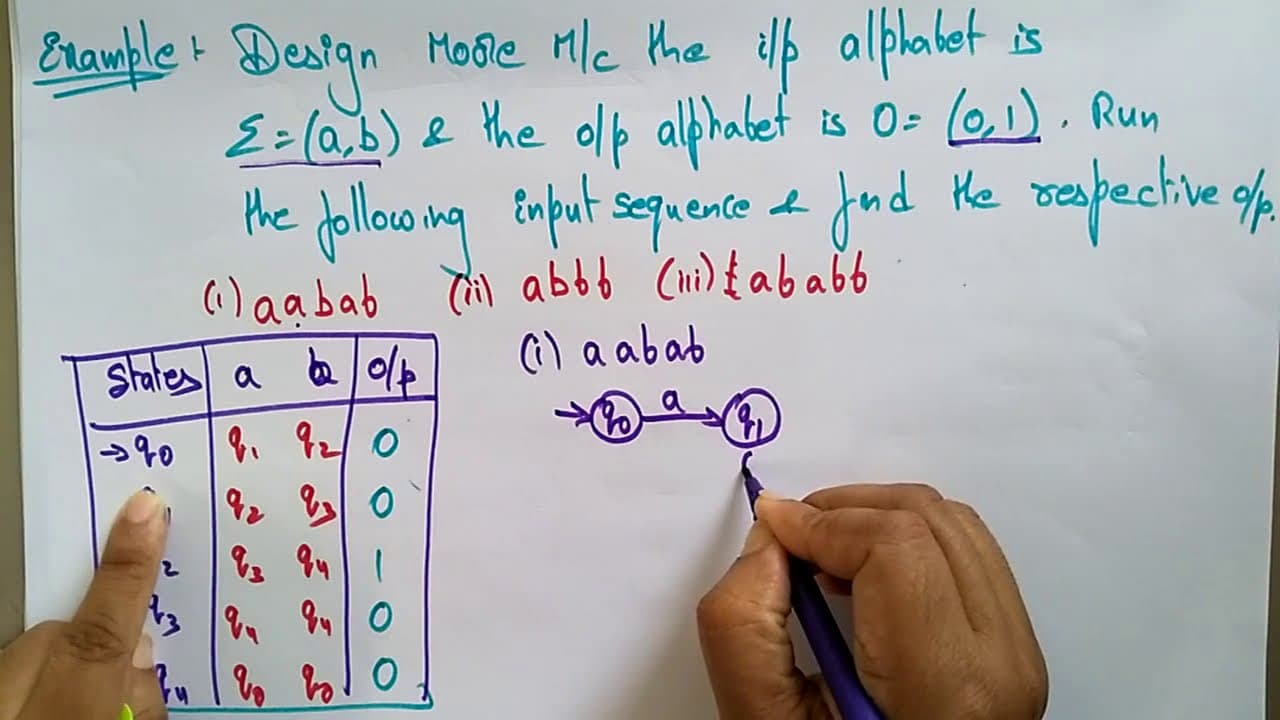 Example: Design Moore M/c the i/p alphabet is
Σ=(a,b) & the o/p alphabet is O= (0,1). Run
the following input sequence & find the respective o/p.
(i) aabab (ii) abbb (iii) ababb
(i) aabab
States a b o/p
→q0 q1 q2 0
q2 q3 0
2 q3 q4 1
q3 q4 q4 0
q4 q0 q0 0
→ q0 a q1